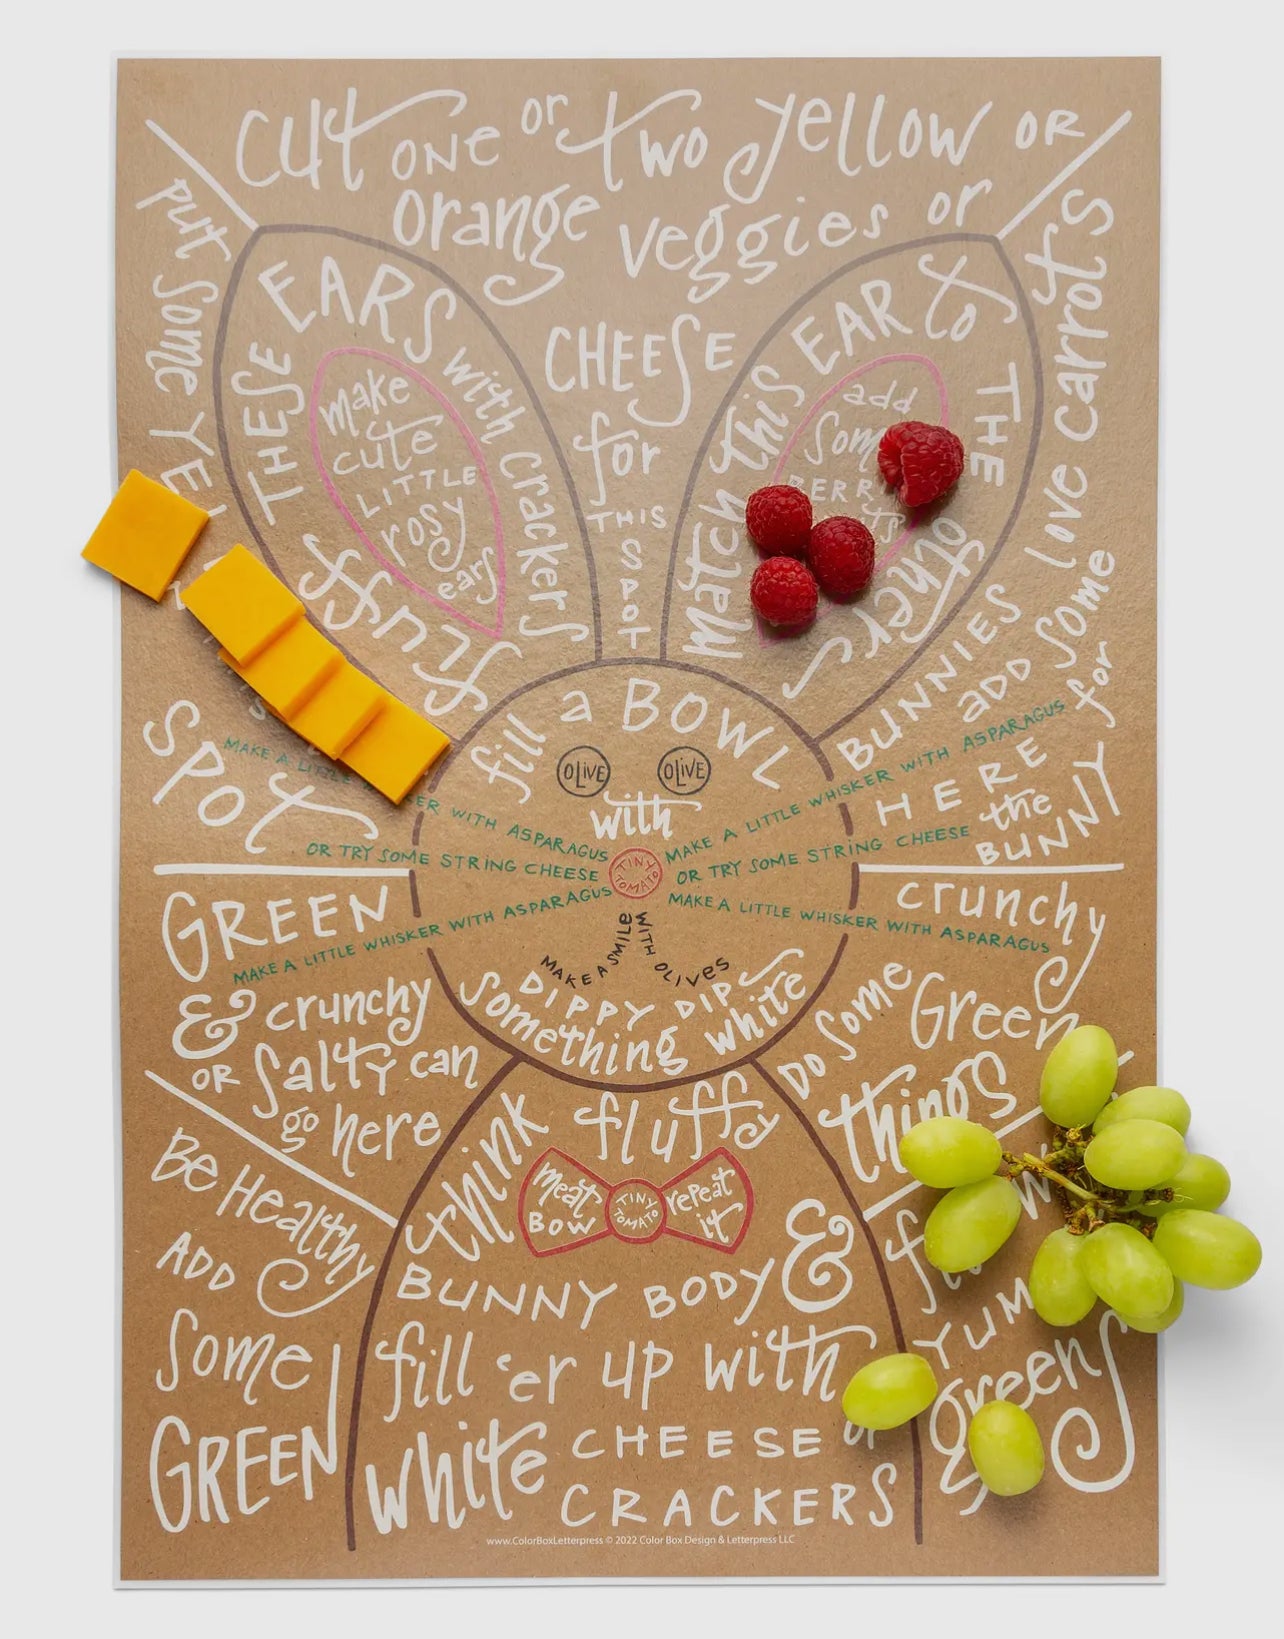 CUT ONE or two yellow OR
orange veggies or
CHEESE
for
THIS
SPOT
PUT Some YEL
SPOT
THESE EARS with crackers
STUFF
make
cute
LITTLE
rosy
ears
Match this EAR to THE
others
add
Som
BERR
BUNNIES love carrots
ADD Some
HERE for
the
BUNNY
fill a BOWL
OLIVE OLIVE
with
TINY
TOMATO
MAKE A LITTLE
ER WITH ASPARAGUS
OR TRY SOME STRING CHEESE
MAKE A LITTLE WHISKER WITH ASPARAGUS
MAKE A LITTLE WHISKER WITH ASPARAGUS
OR TRY SOME STRING CHEESE
MAKE A LITTLE WHISKER WITH ASPARAGUS
MAKE A SMILE
WITH OLIVES
DIPPY DIP
something white
GREEN
& crunchy
OR Salty can
go here
crunchy
DO Some Green
things
Be Healthy
ADD
Some
GREEN
think fluffy
meat
BOW
TINY
TOMATO
repeat
it
BUNNY BODY &
fill 'er up with
white CHEESE
CRACKERS
YUM
greens
www.ColorBoxLetterpress © 2022 Color Box Design & Letterpress LLC